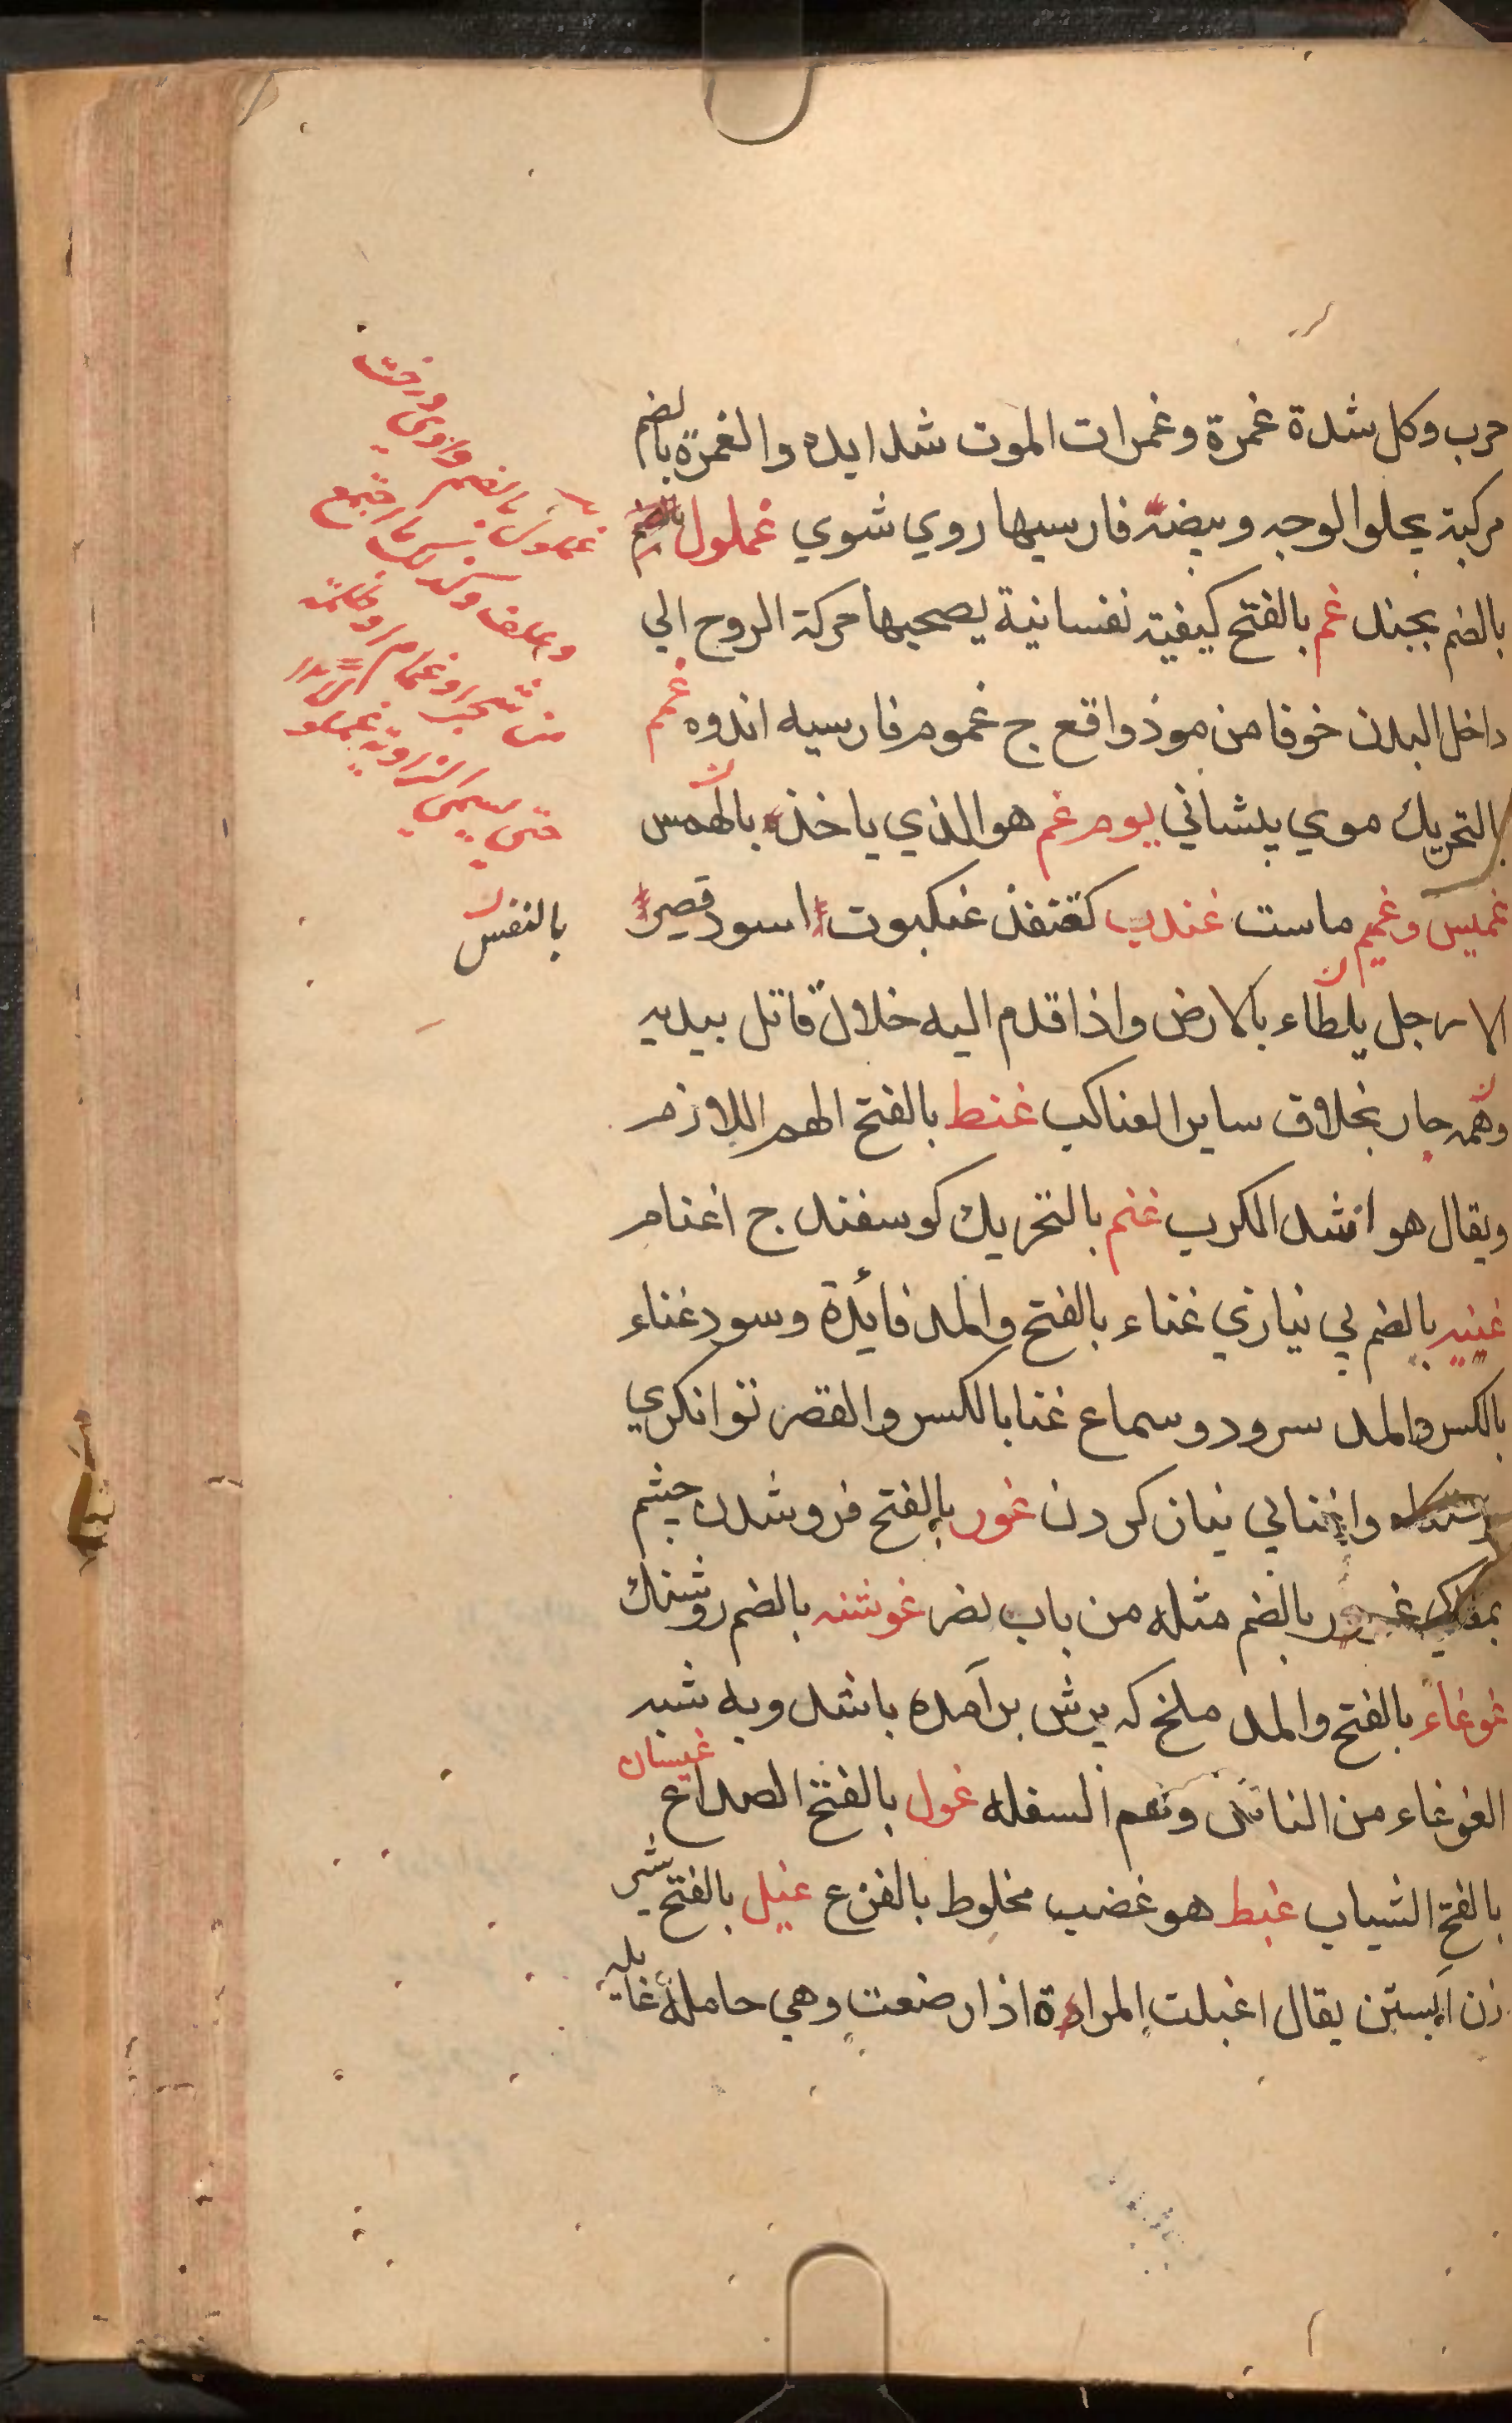 حرب وكل شدة غمرة وغمرات الموت شدايده والغمرة بالضم
مركبة يجلوا لوجه وبيضه فارسيها روي شوي غملول بالضم
بالضم بجند غم بالفتح كيفية نفسانية يصحبها حركة الروح الي
داخل البدن خوفا من موذ واقع ج غموم فارسيه اندوه غمم
بالتحريك موي پيشاني يوم غم هو الذي ياخذ بالهمس
غميس وغميم ماست غندب كقنفذ عنكبوت اسود قصير
الارجل يلطاء بالارض واذا قدم اليه خلال قاتل بيديه
وهمه جار بخلاف ساير العناكب غنط بالفتح الهم اللازم
ويقال هو اشد الكرب غنم بالتحريك كوسفند ج اغنام
غنيه بالضم بي نيازي غناء بالفتح والمد فائدة وسود غناء
بالكسر والمد سرود وسماع غنا بالكسر والقصر توانكري
واغنا بي نياز كردن غور بالفتح فروشدن چشم
بمغاكي غوور بالضم مثله من باب نصر غوشنه بالضم روشنك
غوغاء بالفتح والمد ملخ كه پرش برآمده باشد وبه شبه
الغوغاء من الناس وهم السفله غول بالفتح الصداع غيسان
بالفتح الشباب غيظ هو غضب مخلوط بالفزع غيل بالفتح شير
زن آبستن يقال اغيلت المراءة اذا رضعت وهي حاملة غايله
غملول بالضم وادي درخت
وعلف وكذلك ما اجتمع
من شجر او غمام او ظلمة
حتي يسمي الزاوية غملولا
بالنفس